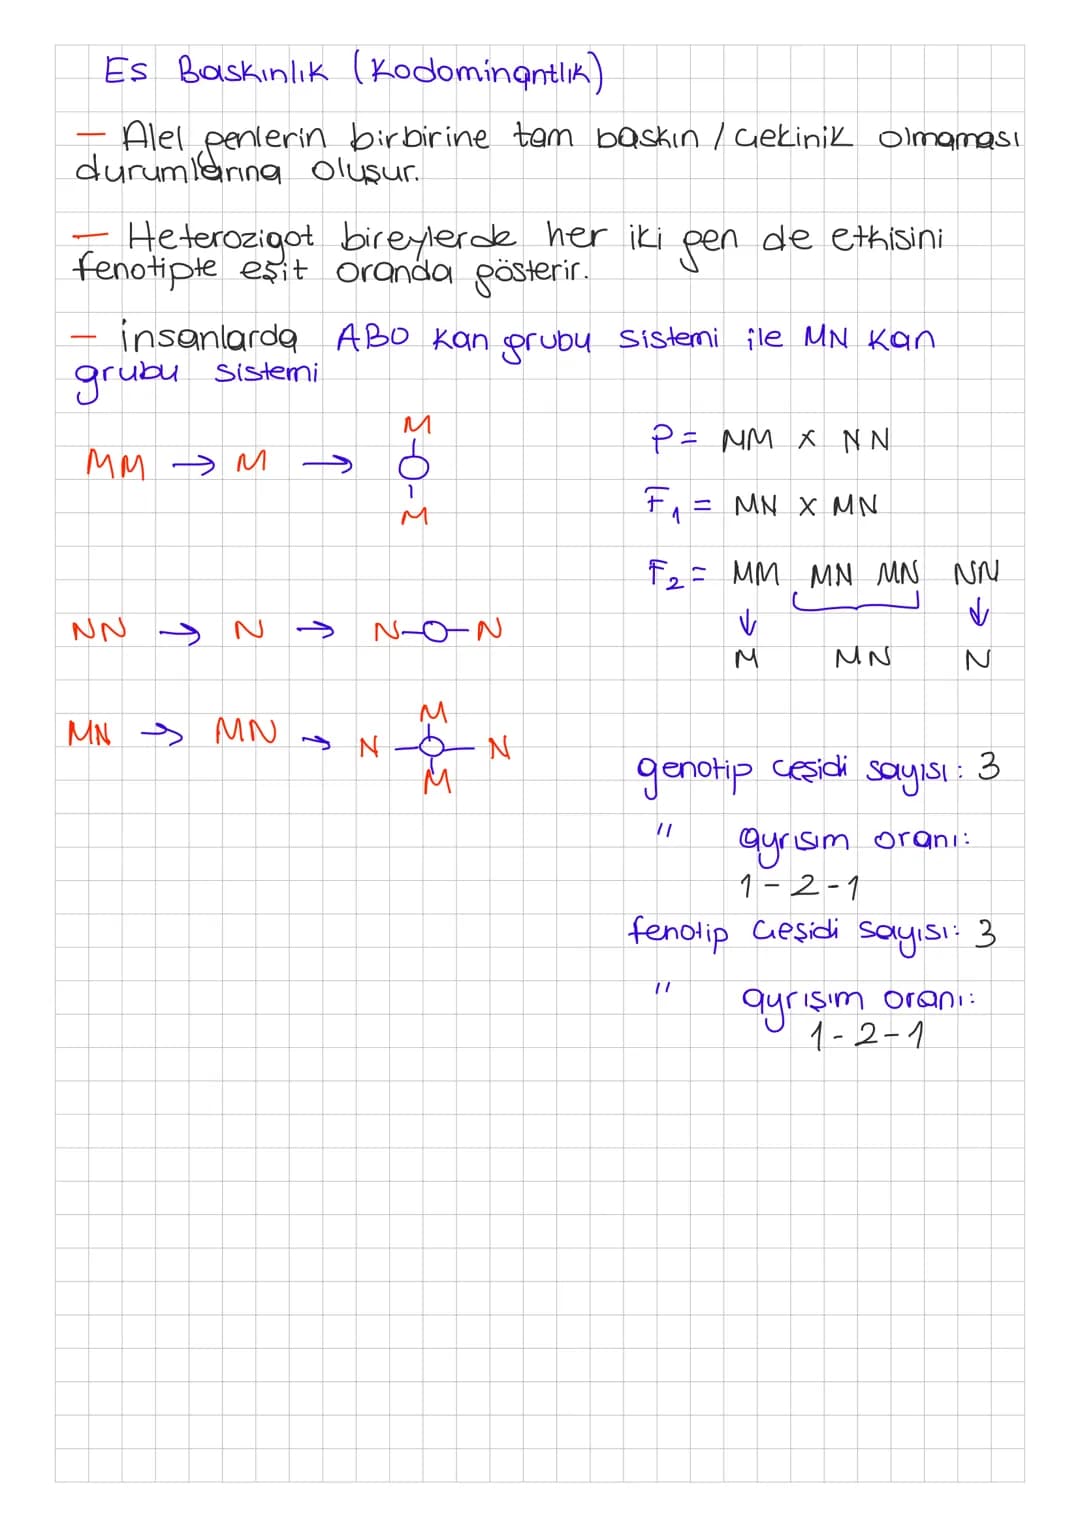 Es Baskınlık (Kodominantlık)
— Alel genlerin birbirine tam baskın / çekinik olmaması
durumlarına oluşur.
— Heterozigot bireylerde her iki gen de etkisini
fenotipte eşit oranda gösterir.
— insanlarda ABO kan grubu sistemi ile MN Kan
grubu sistemi
MM → M →
M
M
NN → N → N-O-N
MN → MN →
M
N N
M
P = MM x NN
F₁ = MN x MN
F₂ = MM MN MN NN
↓ ↓
M MN N
genotip çeşidi sayısı: 3
" ayrısım oranı:
1-2-1
fenotip çeşidi sayısı: 3
" ayrışım oranı:
1-2-1